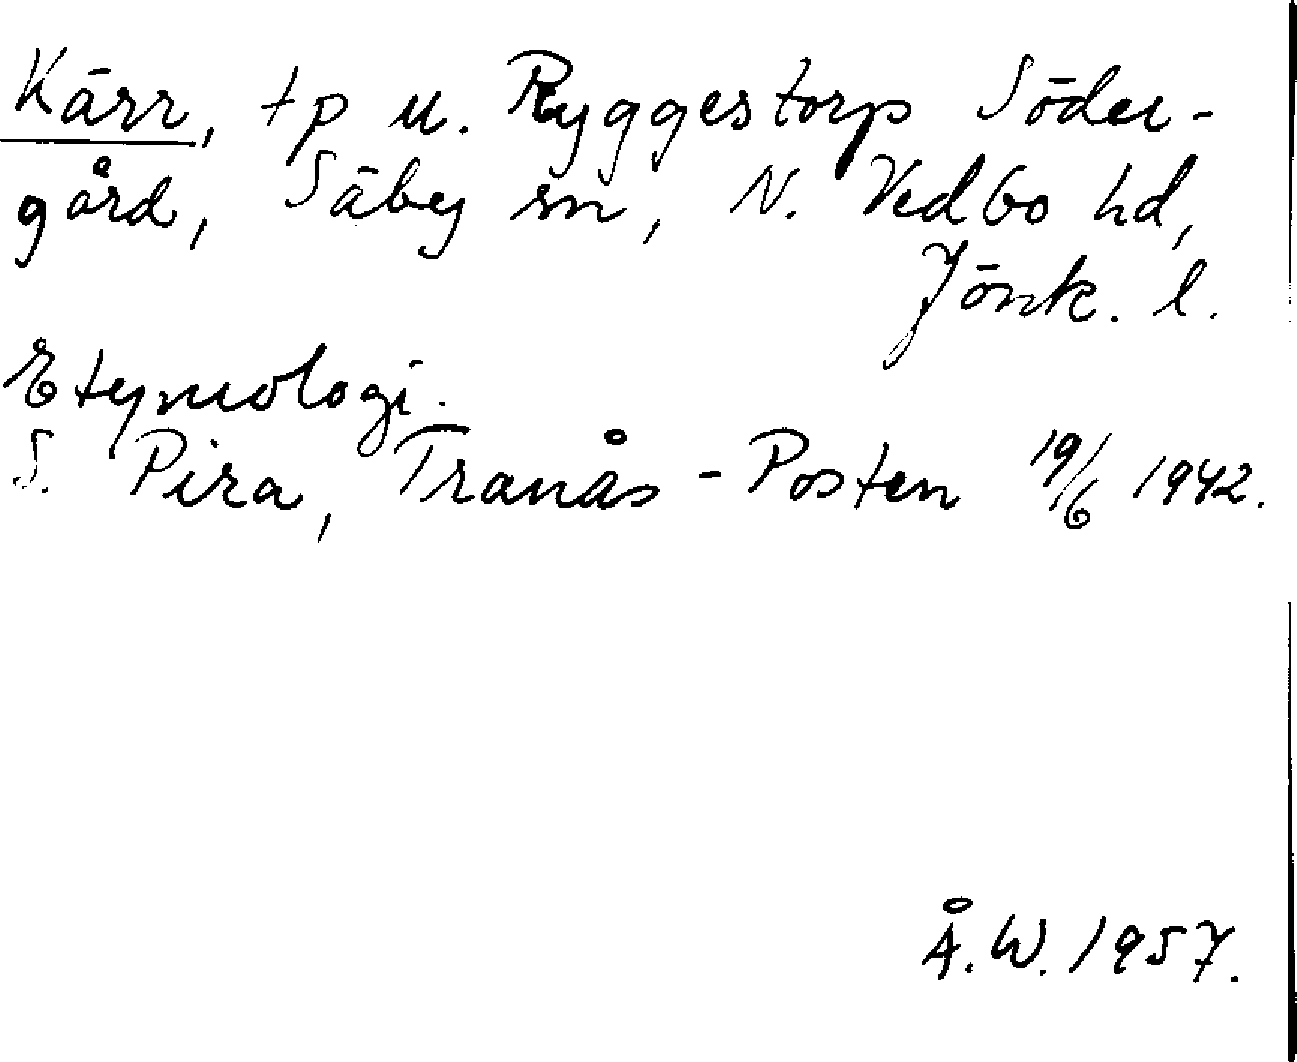 Kärr, tp u. Ryggestorp Söder-
gård, Säby sn, N. Vedbo hd,
Jönk. l.
Etymologi.
S. Pira, Tranås-Posten 19/6 1942.
Å.W. 1957.